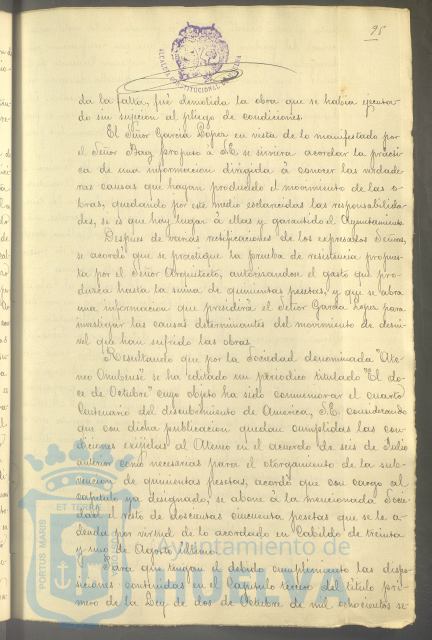 95
ALCALDIA CONSTITUCIONAL
da la falta, fué demolida la obra que se habia ejecuta-
do sin sujecion al pliego de condiciones.
El Señor Garcia Lopez en vista de lo manifestado por
el Señor propuso á S.E. se sirviera acordar la practi-
ca de una informacion dirigida á conocer las verdade-
ras causas que hayan producido el movimiento de las o-
bras, quedando por este medio esclarecidas las responsabilida-
des, si es que hay lugar á ellas y garantido el Ayuntamiento.
Despues de varias rectificaciones de los expresados Señores,
se acordó que se practique la prueba de resistencia propues-
ta por el Señor Arquitecto, autorizandose el gasto que pro-
duzca hasta la suma de quinientas pesetas, y que se abra
una informacion que presidirá el Señor Garcia Lopez para
investigar las causas determinantes del movimiento de desni-
vel que han sufrido las obras.
Resultando que por la Sociedad denominada "Ate-
neo Onubense" se ha editado un periodico titulado "El do-
ce de Octubre" cuyo objeto ha sido conmemorar el cuarto
Centenario del descubrimiento de America, S.E. considerando
que con dicha publicacion quedan cumplidas las con-
diciones exijidas al Ateneo en el acuerdo de seis de Julio
anterior como necesarias para el otorgamiento de la sub-
vencion de quinientas pesetas, acordó que con cargo al
capitulo ya designado, se abone á la mencionada Socie-
dad el resto de doscientas cincuenta pesetas que se le a-
deuda por virtud de lo acordado en Cabildo de treinta
y uno de Agosto ultimo.
Para que tengan el debido cumplimiento las dispo-
siciones contenidas en el Capitulo tercero del titulo pri-
mero de la Ley de dos de Octubre de mil ochocientos se-
ET TERRÆ
PORTUS MARIS
Ayuntamiento de
HUELVA